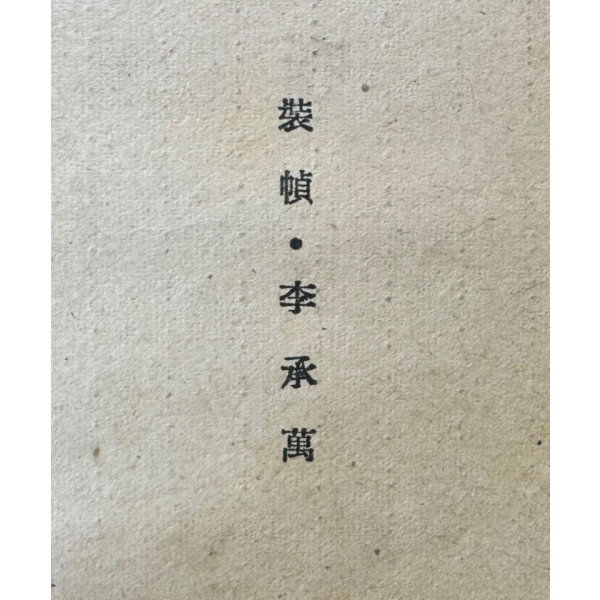 裝幀・李承萬